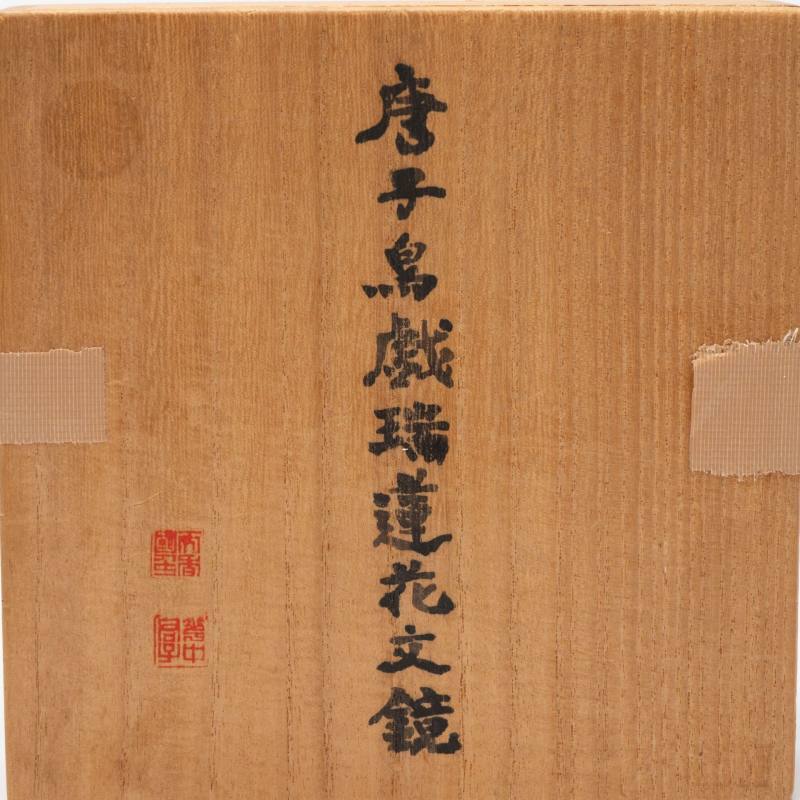 唐子鳥戯瑞蓮花文鏡